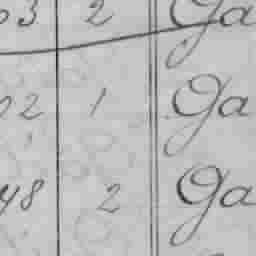 03 2 Ga
02 1 Ga
48 2 Ga